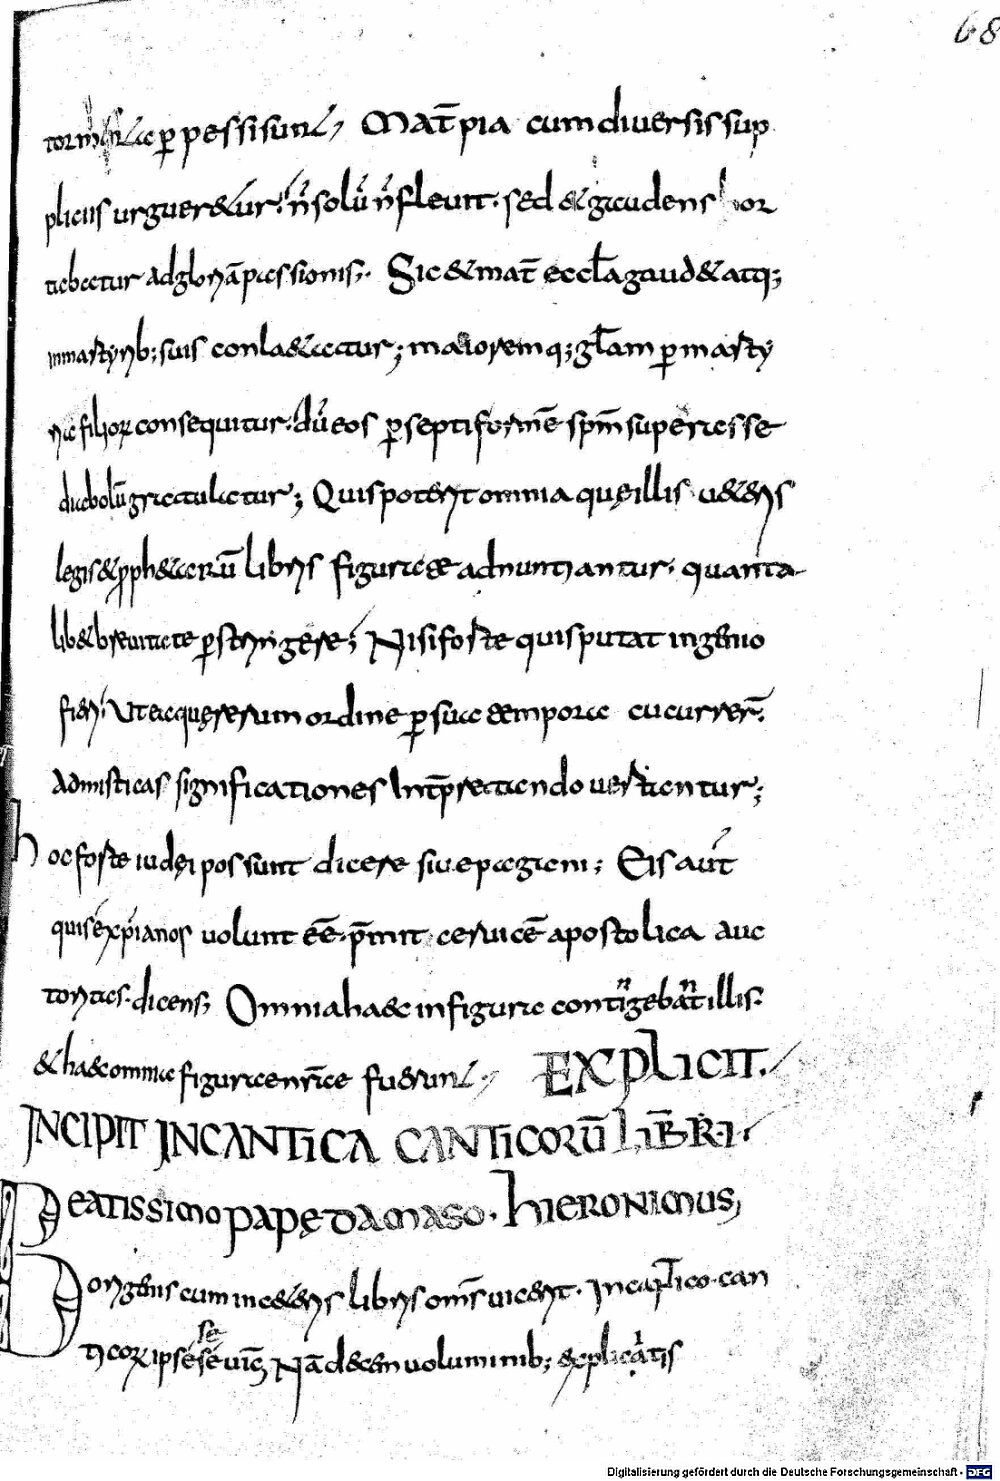 68
perpessi sunt; Mat̄ pia cum diversis sup
pliciis urguer&ur. ñ solū ñ flevit. sed & gaudens hor
tabatur ad gloriā passionis; Sic & mat̄ eccła gaud& atq;
in martyrib; suis conla&atur; maiorem q; głam p martỹ
filior consequitur. dū eos p septiformē sp̄m superasse
diabolū gratulatur; Quis poterit omnia quę illis veteris
legis & ꝓph&arū libris figurate adnuntiantur. quanta
lib& brevitate pstringere; Nisi forte quis putat ingenio
fieri. Ut ea quę rerum ordine p sua tempora cucurrer̄.
ad misticas significationes Int̄pretando vertantur;
hoc forte iudęi possunt dicere sive pagani; Eis aūt
qui se xp̄ianos volunt ēē. p̄mit cervicē apostolica auc
toritas. dicens; Omnia haec in figura contingebant illis.
& haec omnia figurae nr̄ae fuerunt; EXPLICIT.
INCIPIT IN CANTICA CANTICORŪ LIBR̄. I.
BEATISSIMO PAPĘ DAMASO. HIERONIMUS;
Origenis cum in ceteris libris om̄s vicerit. In cantico can
ticor ipse se vicit; Nā decem voluminib; explicatis
Digitalisierung gefördert durch die Deutsche Forschungsgemeinschaft - DFG